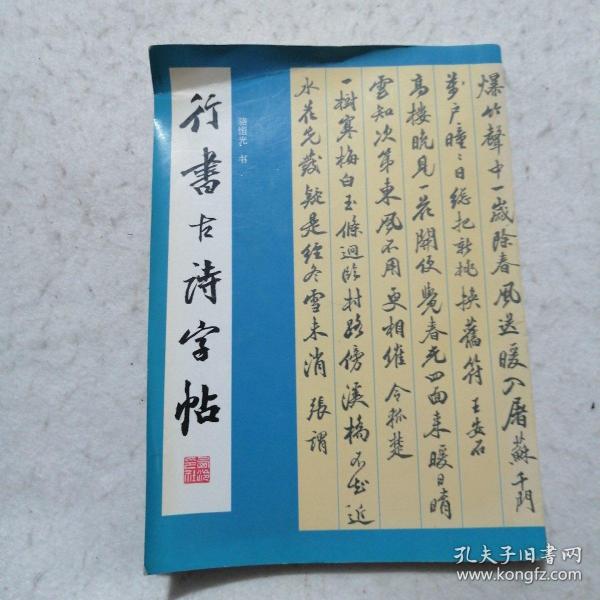 行书古诗字帖
骆恒光 书
爆竹聲中一歲除春風送暖入屠蘇千門
萬户曈〻日總把新桃換舊符 王安石
高樓晚見一花開便覺春光四面来暖日晴
雲知次第東風不用更相催 令狐楚
一樹寒梅白玉條迥臨村路傍溪橋不知近
水花先發疑是經冬雪未消 張謂
孔夫子旧书网
www.kongfz.com